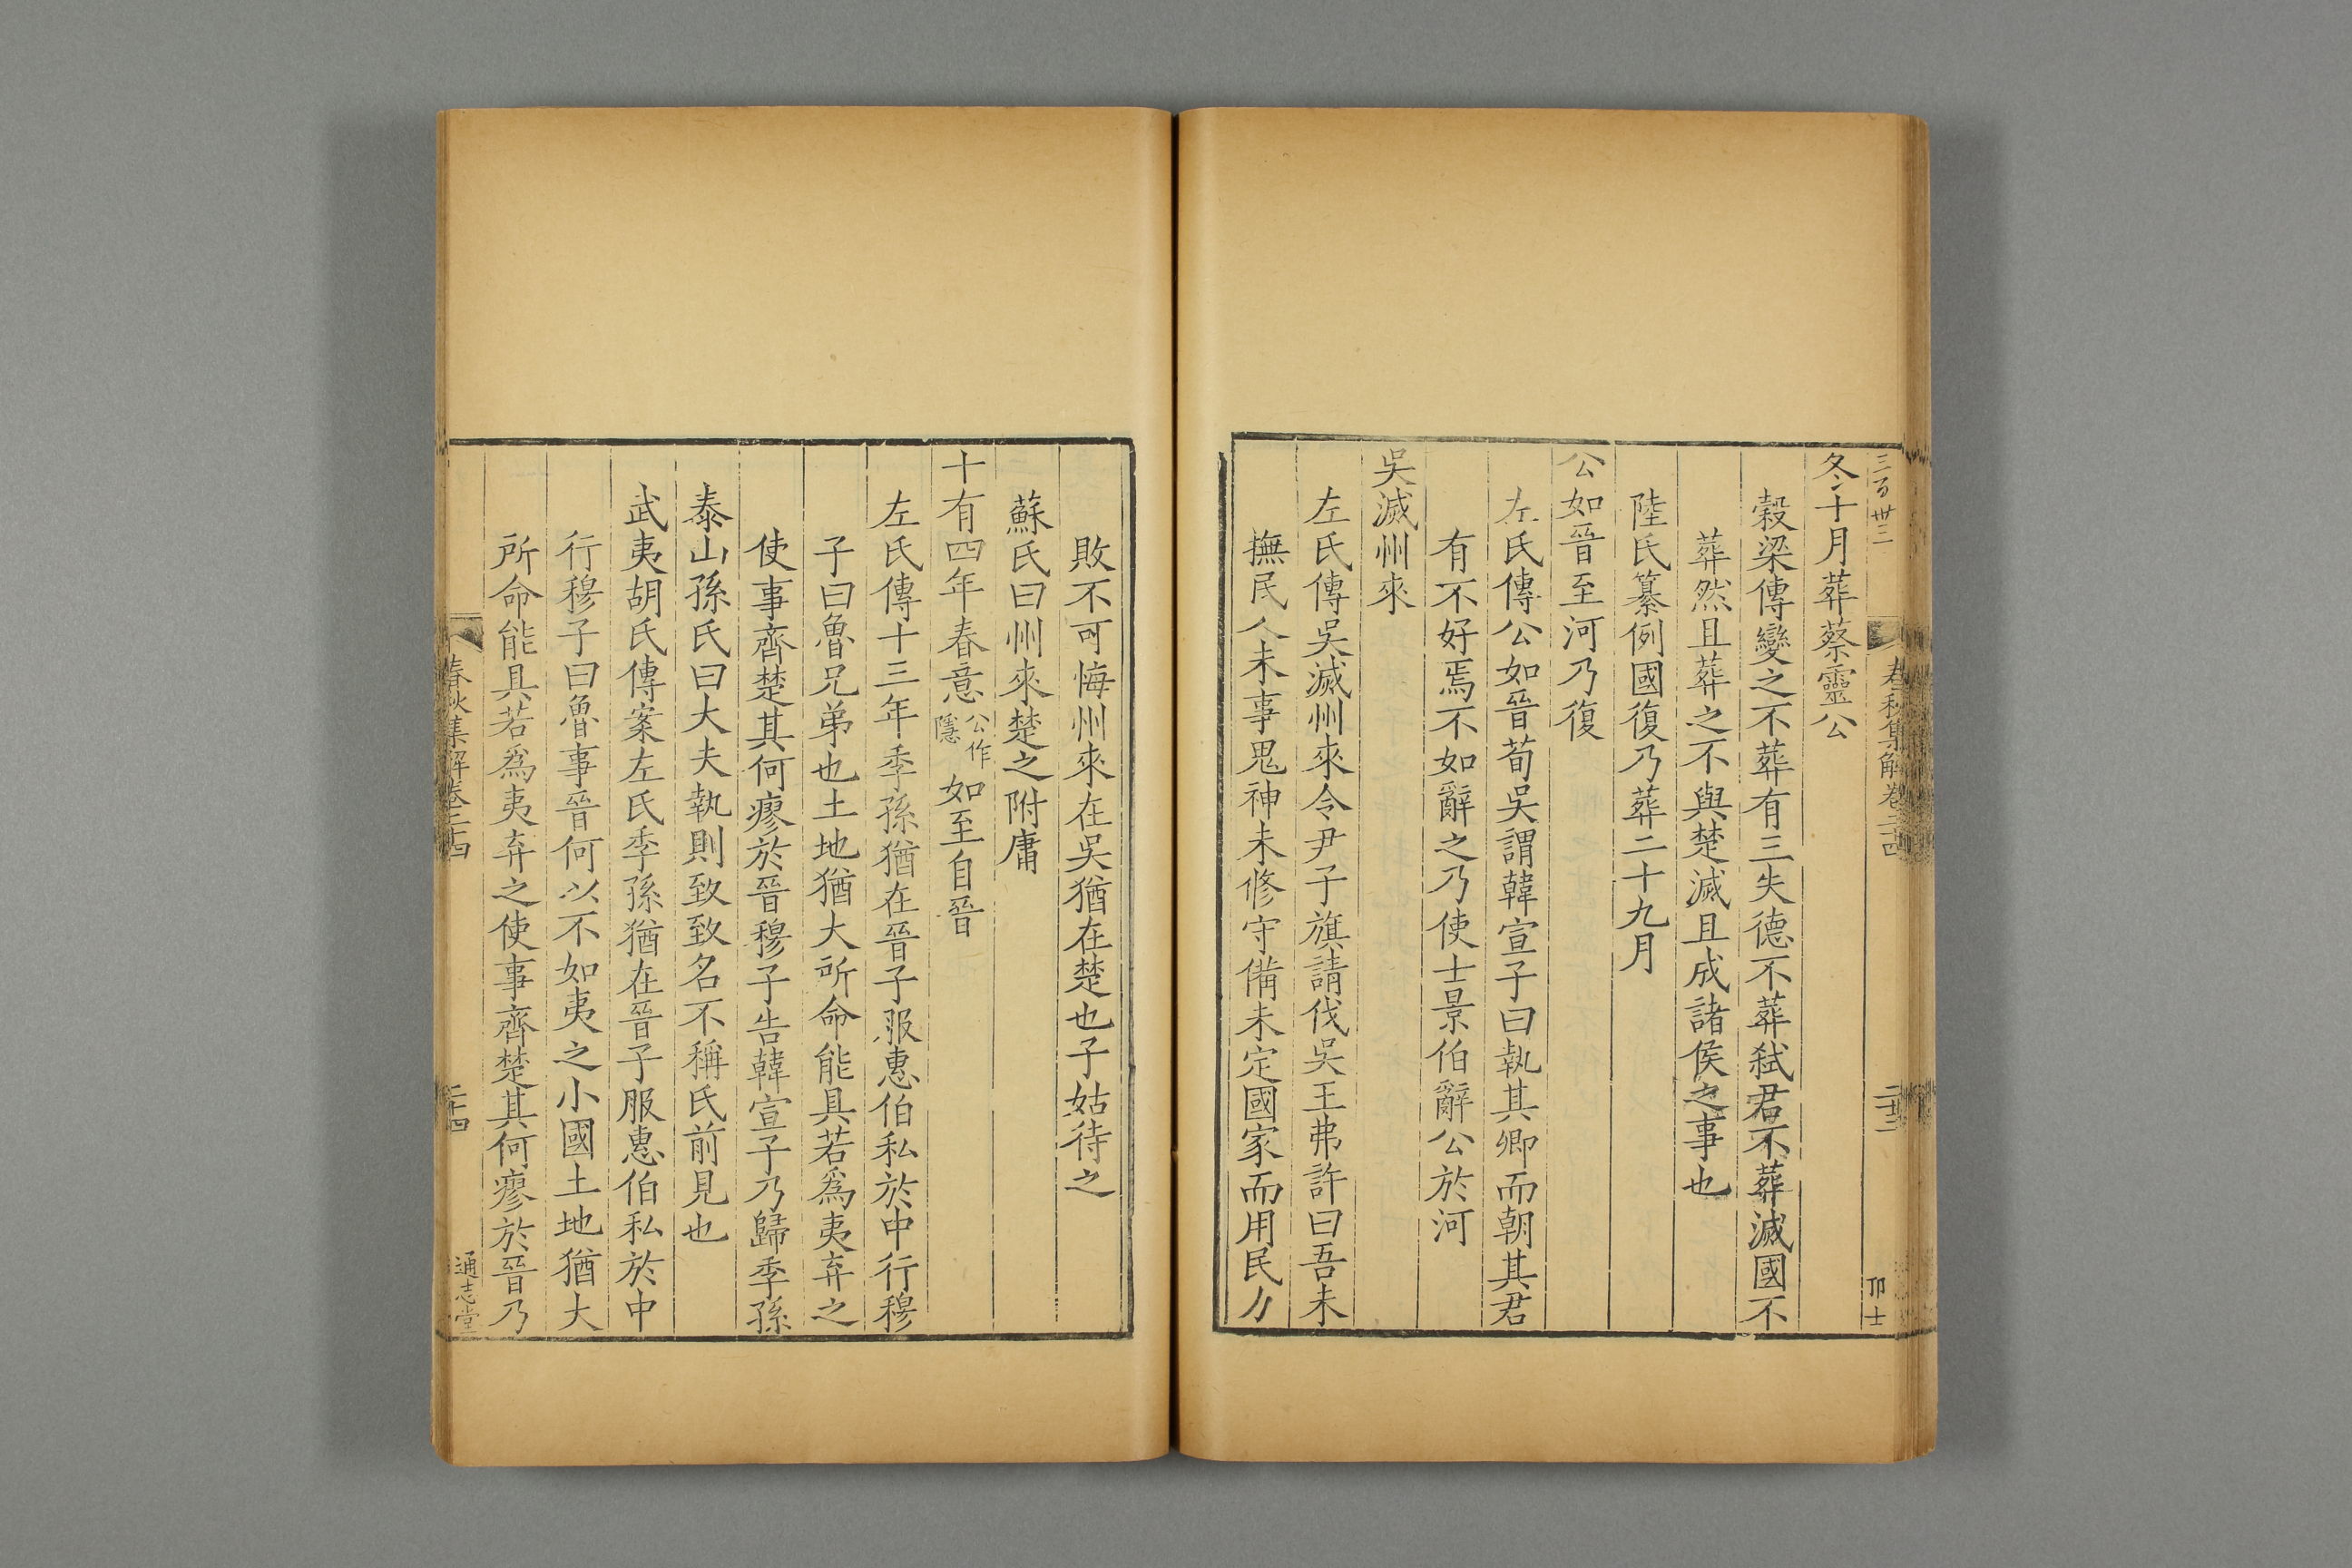 三百卅三
春秋集解卷二十四
二十三
冬十月葬蔡靈公
穀梁傳變之不葬有三失德不葬弒君不葬滅國不
葬然且葬之不與楚滅且成諸侯之事也
陸氏纂例國復乃葬二十九月
公如晉至河乃復
左氏傳公如晉荀吳謂韓宣子曰執其卿而朝其君
有不好焉不如辭之乃使士景伯辭公於河
吳滅州來
左氏傳吳滅州來令尹子旗請伐吳王弗許曰吾未
撫民人未事鬼神未修守備未定國家而用民力
敗不可悔州來在吳猶在楚也子姑待之
蘇氏曰州來楚之附庸
十有四年春意公作隱如至自晉
左氏傳十三年季孫猶在晉子服惠伯私於中行穆
子曰魯兄弟也土地猶大所命能具若爲夷弃之
使事齊楚其何瘳於晉穆子告韓宣子乃歸季孫
泰山孫氏曰大夫執則致致名不稱氏前見也
武夷胡氏傳案左氏季孫猶在晉子服惠伯私於中
行穆子曰魯事晉何以不如夷之小國土地猶大
所命能具若爲夷弃之使事齊楚其何瘳於晉乃
春秋集解卷二十四
二十四
通志堂